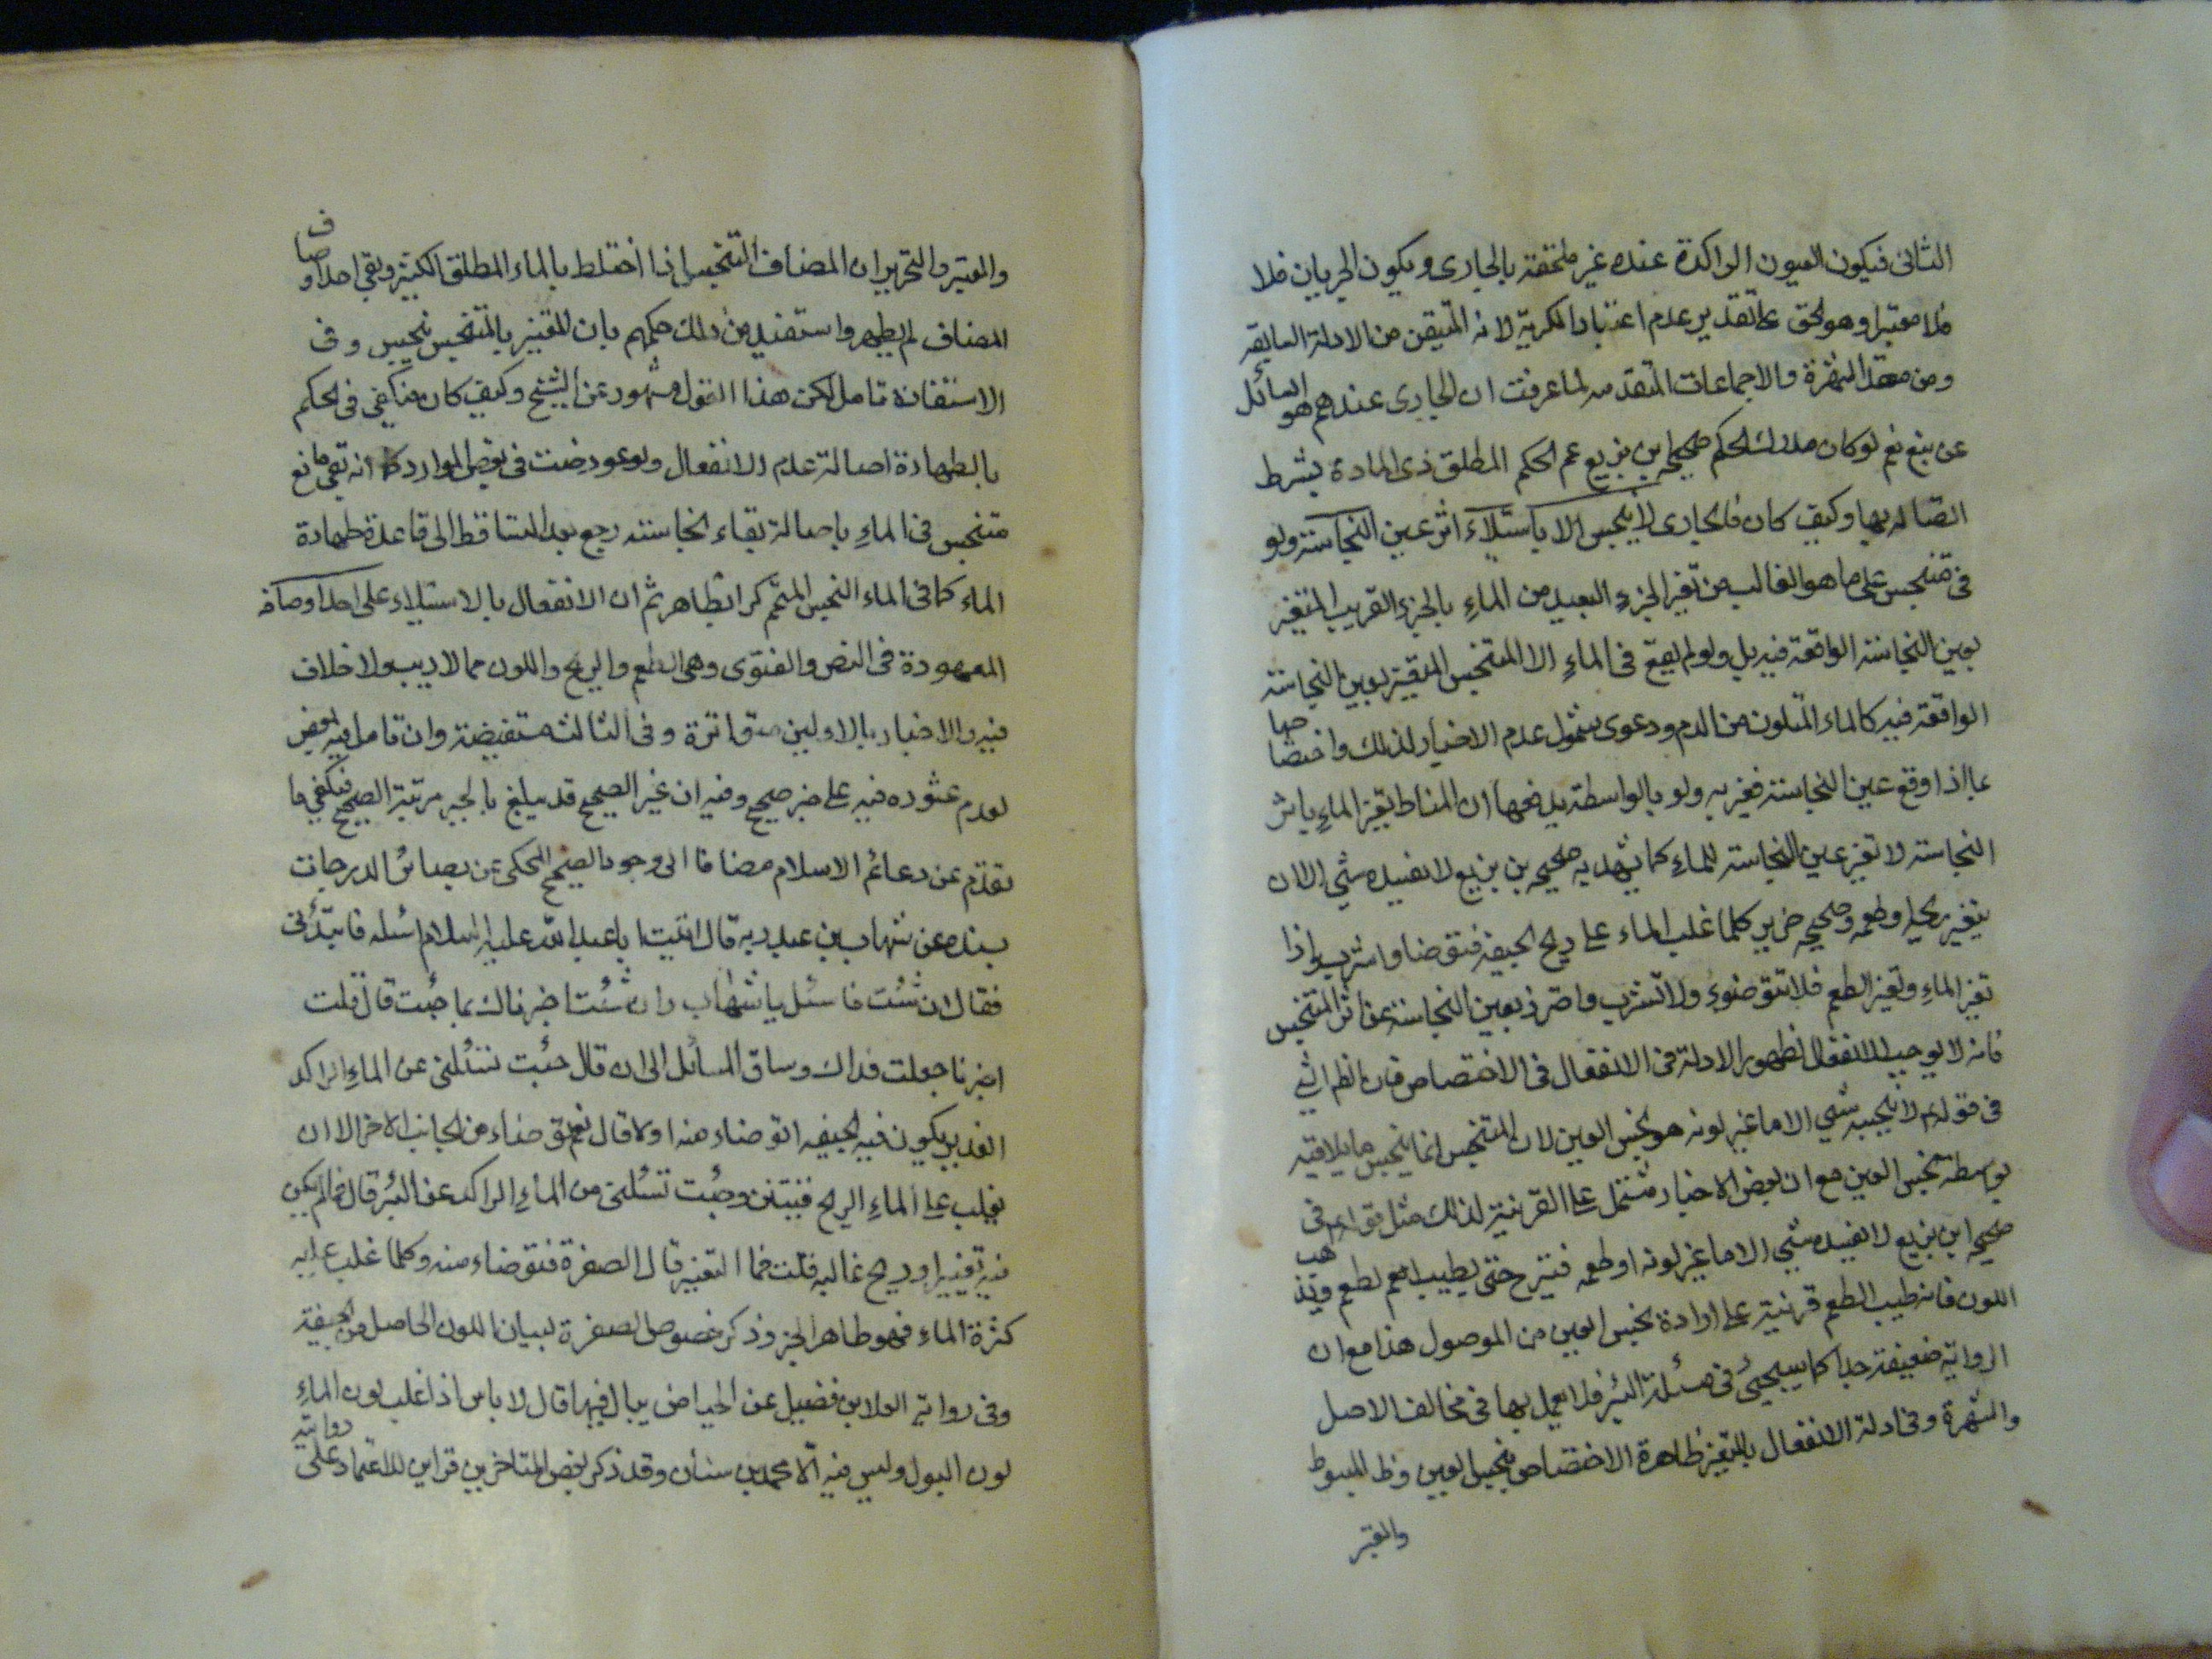 الثانى فيكون العيون الراكدة عنده غير ملحقة بالجارى ويكون الجريان فلا
فلا معتبرا وهو لحق على تقدير عدم اعتبار الكرية لانه المتيقن من الادلة السابقه
ومن معقد الشهرة والاجماعات المتقدمه لما عرفت ان الجارى عندهم هو السائل
عن نبع نعم لو كان مدرك الحكم صحيحه ابن بزيع عم الحكم المطلق ذى المادة بشرط
اتصاله بها وكيف كان فالجارى لا ينجس الا باستيلاء اثر عين النجاسته ولو
فى متنجس على ما هو الغالب من تغير الجزء البعيد من الماء بالجزء القريب المتغير
بعين النجاسته الواقعة فيه بل ولو لم يقع فى الماء الا المتنجس المتغير بعين النجاسته
الواقعة فيه كالماء المتلون من الدم ودعوى شمول عدم الاخبار لذلك واختصاصها
بما اذا وقع عين النجاسته فغيره ولو بالواسطة يدفعها ان المناط تغير الماء باثر
النجاسته لا تغير عين النجاسته للماء كما يشهد به صحيحه بن بزيع لا يفسده شئ الا ان
يتغير ريحه او طعمه وصحيحه حريز كلما غلب الماء على ريح الجيفة فتوضا واشرب واذا
تغير الماء وتغير الطعم فلا تتوضوء ولا تشرب واحترز بعين النجاسته عن اثر المتنجس
فانه لا يوجب الانفعال لظهور الادلة فى الانفعال فى الاختصاص فان الظم الشئ
فى قولهم لا ينجسه شئ الا ما غير لونه هو نجس العين لان المتنجس انما ينجس ما يلاقيه
بواسطه نجس العين مع ان بعض الاخبار مشتمل على القرينة لذلك مثل قوله فى
صحيحه ابن بزيع لا يفسده شئ الا ما غير لونه او طعمه فينزح حتى يطيب طعم لطعم ويذهب
اللون فان طيب الطعم قرينة على ارادة نجس العين من الموصول هذا مع ان
الرواية ضعيفة جدا كما سيجئ فى مسئلة البئر فلا يعمل بها فى مخالف الاصل
والشهرة وفى ادلة الانفعال بالتغير ظاهرة الاختصاص بنجس العين وظ المبسوط
والمعتبر
والمعتبر والتحرير ان المضاف المتنجس اذا اختلط بالماء المطلق الكثير وبقى احد اوصاف
المضاف لم يطهر واستفيد من ذلك حكمهم بان المتغير بالمتنجس نجس وفى
الاستفادة تامل لكن هذا القول مشهور عن الشيخ وكيف كان فيكفى فى الحكم
بالطهارة اصالة عدم الانفعال ولو عورضت فى بعض الموارد كما انه بقى مائع
متنجس فى الماء باصالة بقاء نجاسته رجع بعد التساقط الى قاعدة طهارة
الماء كما فى الماء النجس المتمم كرا بطاهر ثم ان الانفعال بالاستيلاء على احد اوصافه
المعهودة فى النص والفتوى وهى الطعم والريح واللون مما لا ريب ولا خلاف
فيه والاخبار بالاولين متواترة وفى الثالث مستفيضة وان تامل فيه بعض
لعدم عثوره فيه على خبر صحيح وفيه ان غير الصحيح قد يبلغ بالجبر مرتبة الصحيح فيكفى ما
تقدم عن دعائم الاسلام مضافا الى وجود الصحيح المحكى عن بصائر الدرجات
بسنده عن شهاب بن عبد ربه قال اتيت ابا عبد الله عليه السلام اسئله فابتدئنى
فقال ان شئت فاسئل يا شهاب وان شئت اخبرناك بما جئت قال قلت
اخبرنا جعلت فداك وساق المسائل الى ان قال جئت تسئلنى عن الماء الراكد
الغدير يكون فيه الجيفه اتوضاء منه او لا قال نعم توضاء من الجانب الاخر الا ان
يغلب على الماء الريح فينتن وجئت تسئلنى من الماء الراكد عن البئر قال فما لم يكن
فيه تغيير او ريح غالبه قلت فما التغيير قال الصفرة فتوضاء منه وكلما غلب عليه
كثرة الماء فهو طاهر الخبر وذكر خصوص الصفرة لبيان اللون الحاصل من الجيفة
وفى رواية العلا بن فضيل عن الحياض يبال فيها قال لا باس اذا غلب لون الماء
لون البول وليس فيه الا محمد بن سنان وقد ذكر بعض المتاخرين قراين للاعتماد على رواية